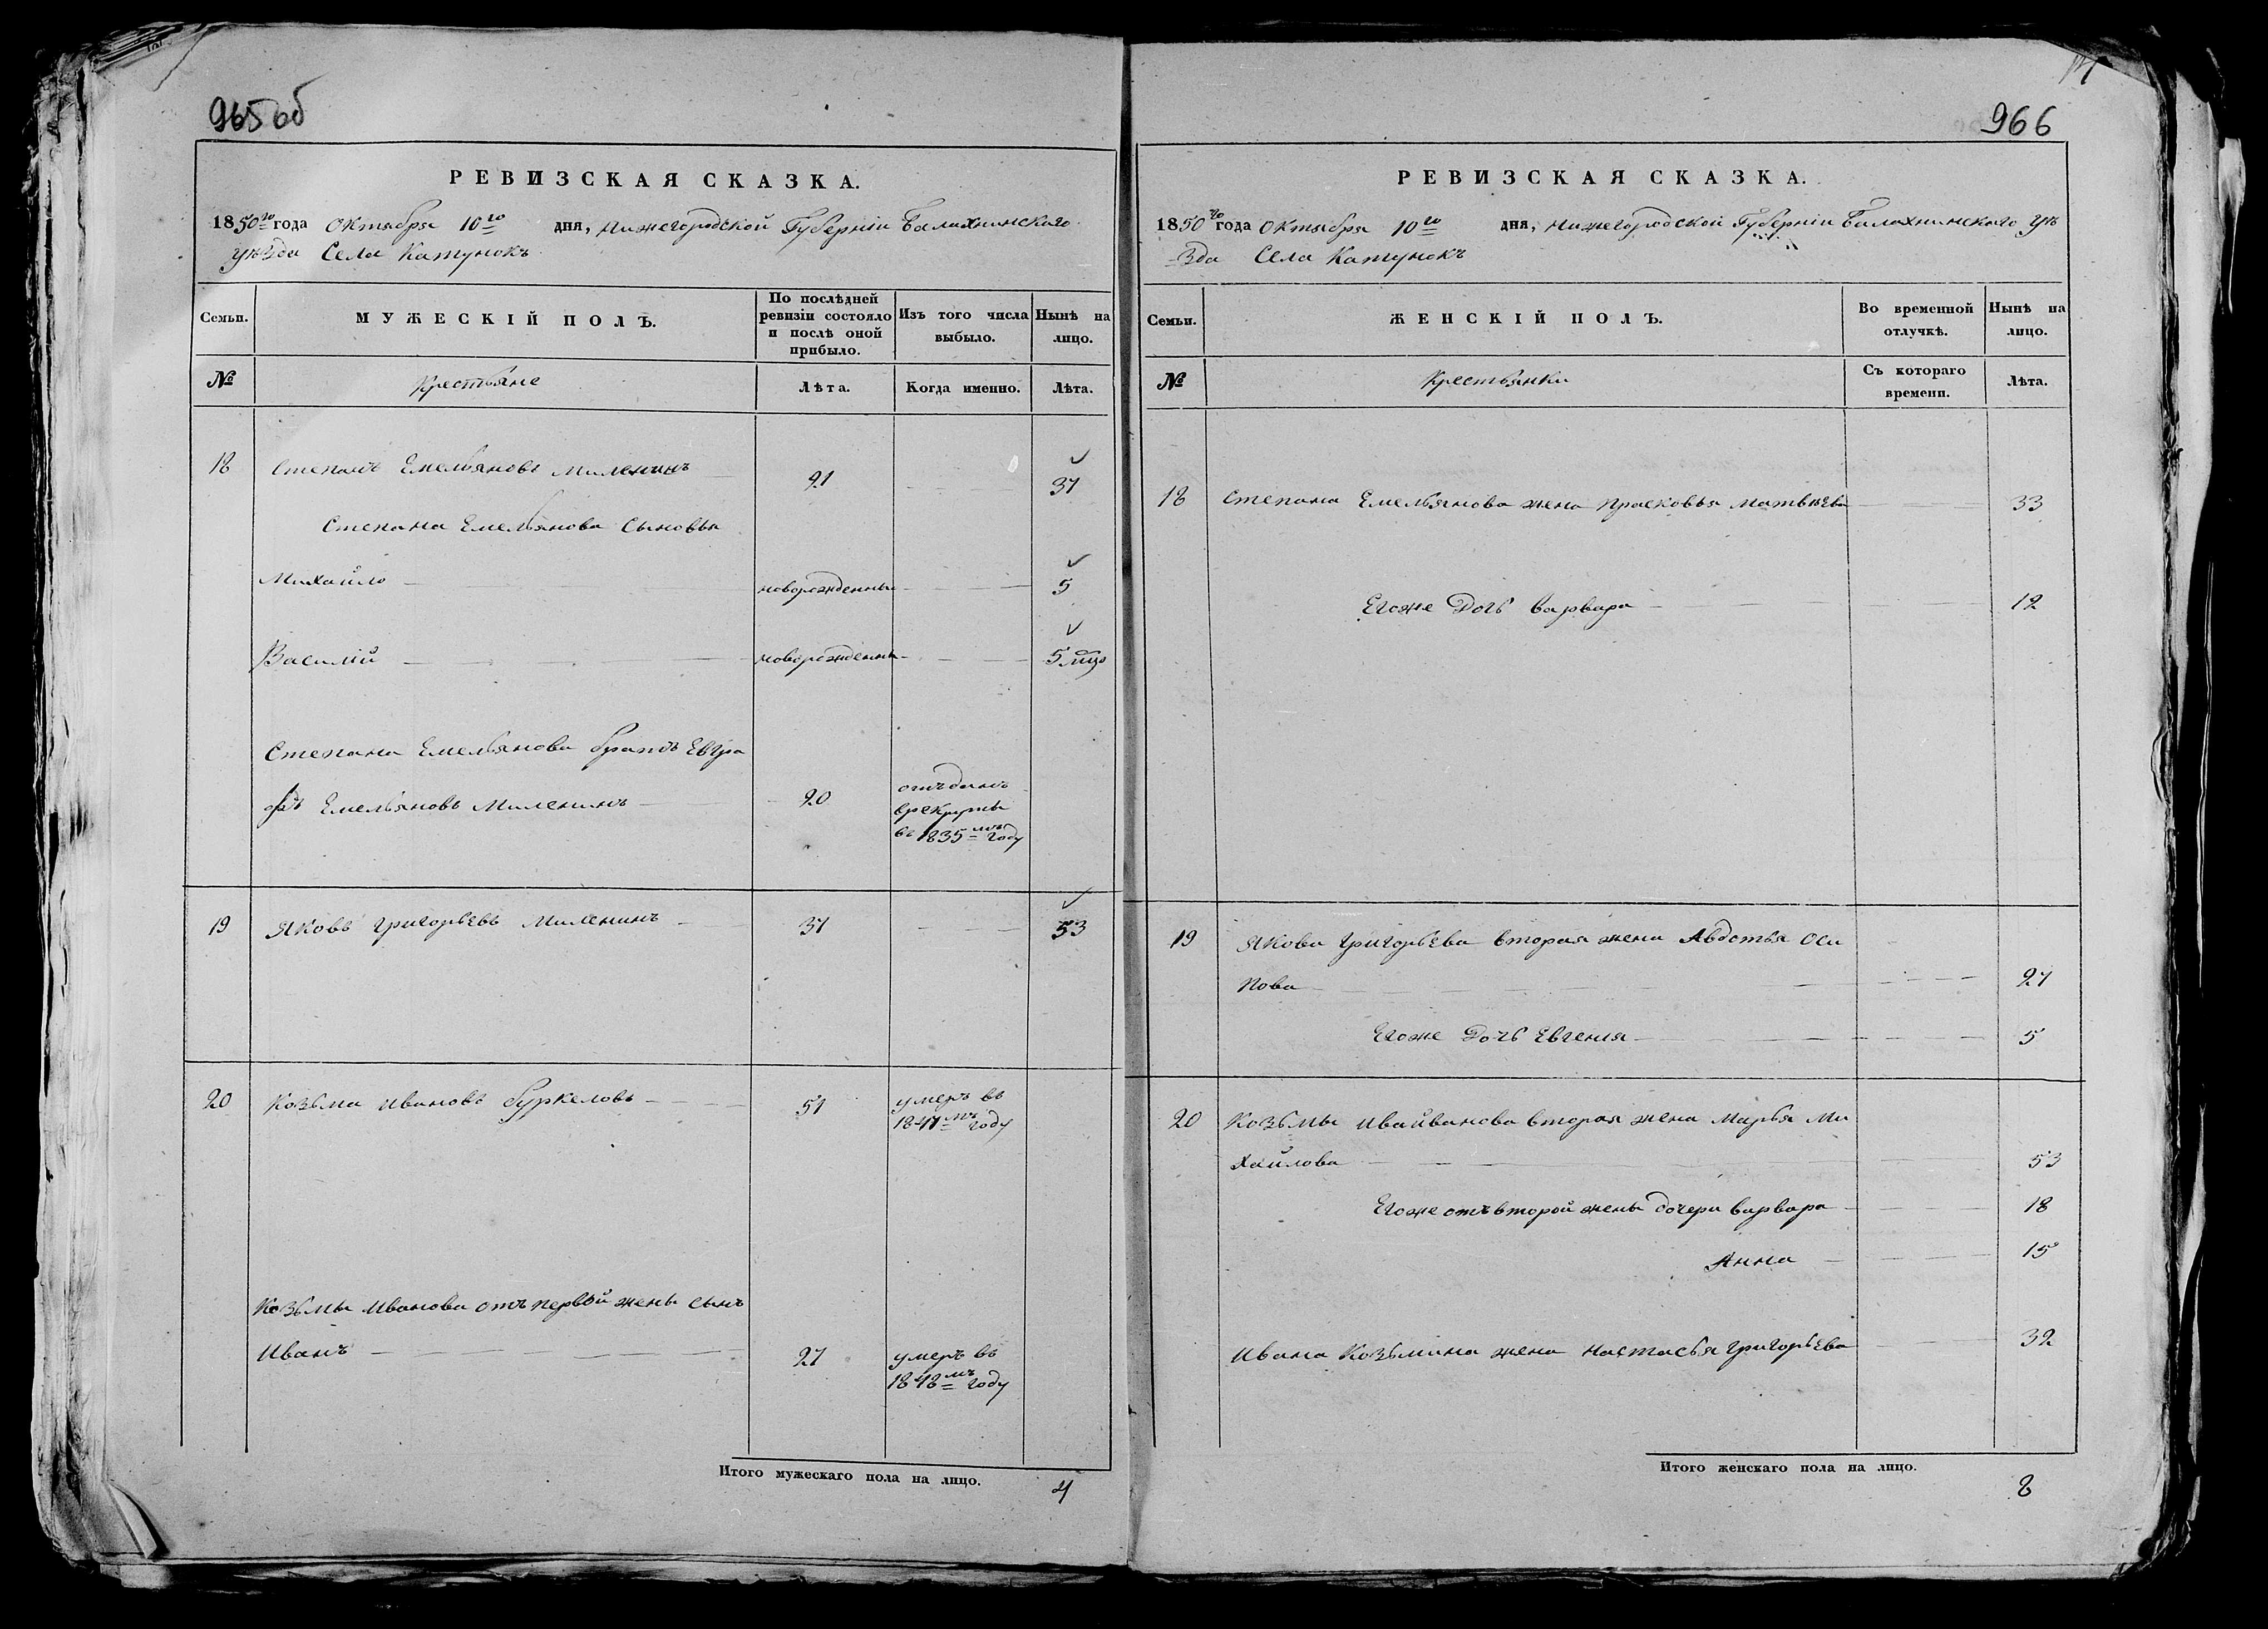 965об
РЕВИЗСКАЯ СКАЗКА.
1850го года Октября 10го дня, Нижегородской Губерніи Балахнинскаго
уѣзда Села Катунокъ
Семьи.
МУЖЕСКІЙ ПОЛЪ.
По послѣдней ревизіи состояло и послѣ оной прибыло.
Изъ того числа выбыло.
Нынѣ на лицо.
№
Крестьяне
Лѣта.
Когда именно.
Лѣта.
18 Степанъ Емельяновъ Миленинъ 21 37
Степана Емельянова Сыновья
Михайло новорожденны 5
Василій новорожденны 5 мцо
Степана Емельянова братъ Евгра
фъ Емельяновъ Миленинъ 20 отъданъ
врекруты
въ 1835мъ году
19 Яковъ Григорьевъ Миленинъ 37 53
20 Козьма Ивановъ Буркеловъ 51 умеръ въ
1841мъ году
Козьмы Иванова отъ первой жены сынъ
Иванъ 27 умеръ въ
1848мъ году
Итого мужескаго пола на лицо. 4
966
РЕВИЗСКАЯ СКАЗКА.
1850го года Октября 10го дня, Нижегородской Губерніи Балахнинскаго Уѣ
-зда Села Катунокъ
Семьи.
ЖЕНСКІЙ ПОЛЪ.
Во временной отлучкѣ.
Нынѣ на лицо.
№
Крестьянки
Съ котораго времени.
Лѣта.
18 Степана Емельянова жена Прасковья Матвѣева 33
Егоже Дочь Варвара 12
19 Якова Григорьева вторая жена Авдотья Оси
пова 27
Егоже Дочь Евгенія 5
20 Козьмы Ивайванова вторая жена Марья Ми
хайлова 53
Егоже отъ второй жены дочери Варвара 18
Анна 15
Ивана Козьмина жена Настасья Григорьева 32
Итого женскаго пола на лицо. 8